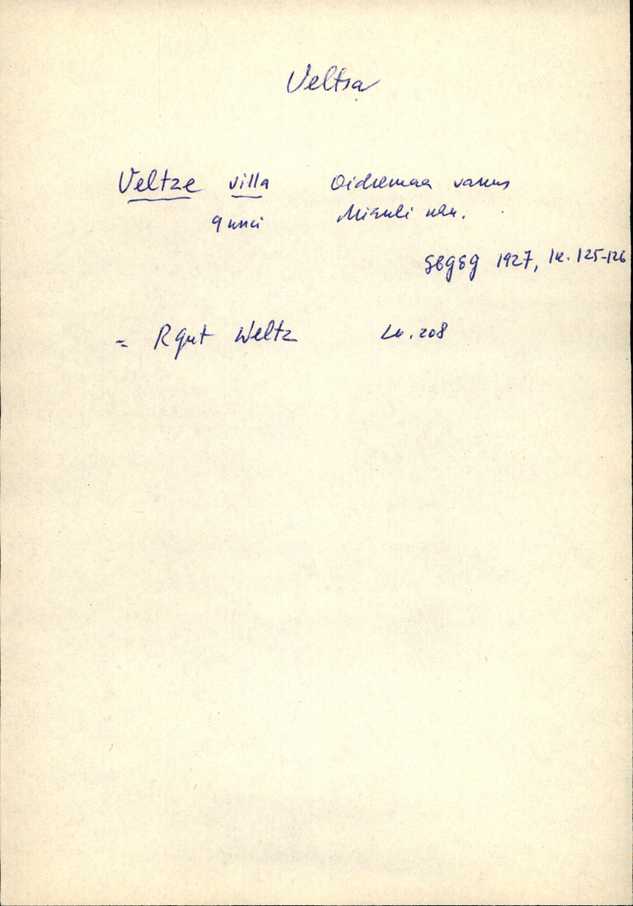 Veltsa
Veltze villa Oidremaa vakus
9 unci Mihkli khk.
SbGEG 1927, lk. 125-126
= Rgut Weltz Lk. 208